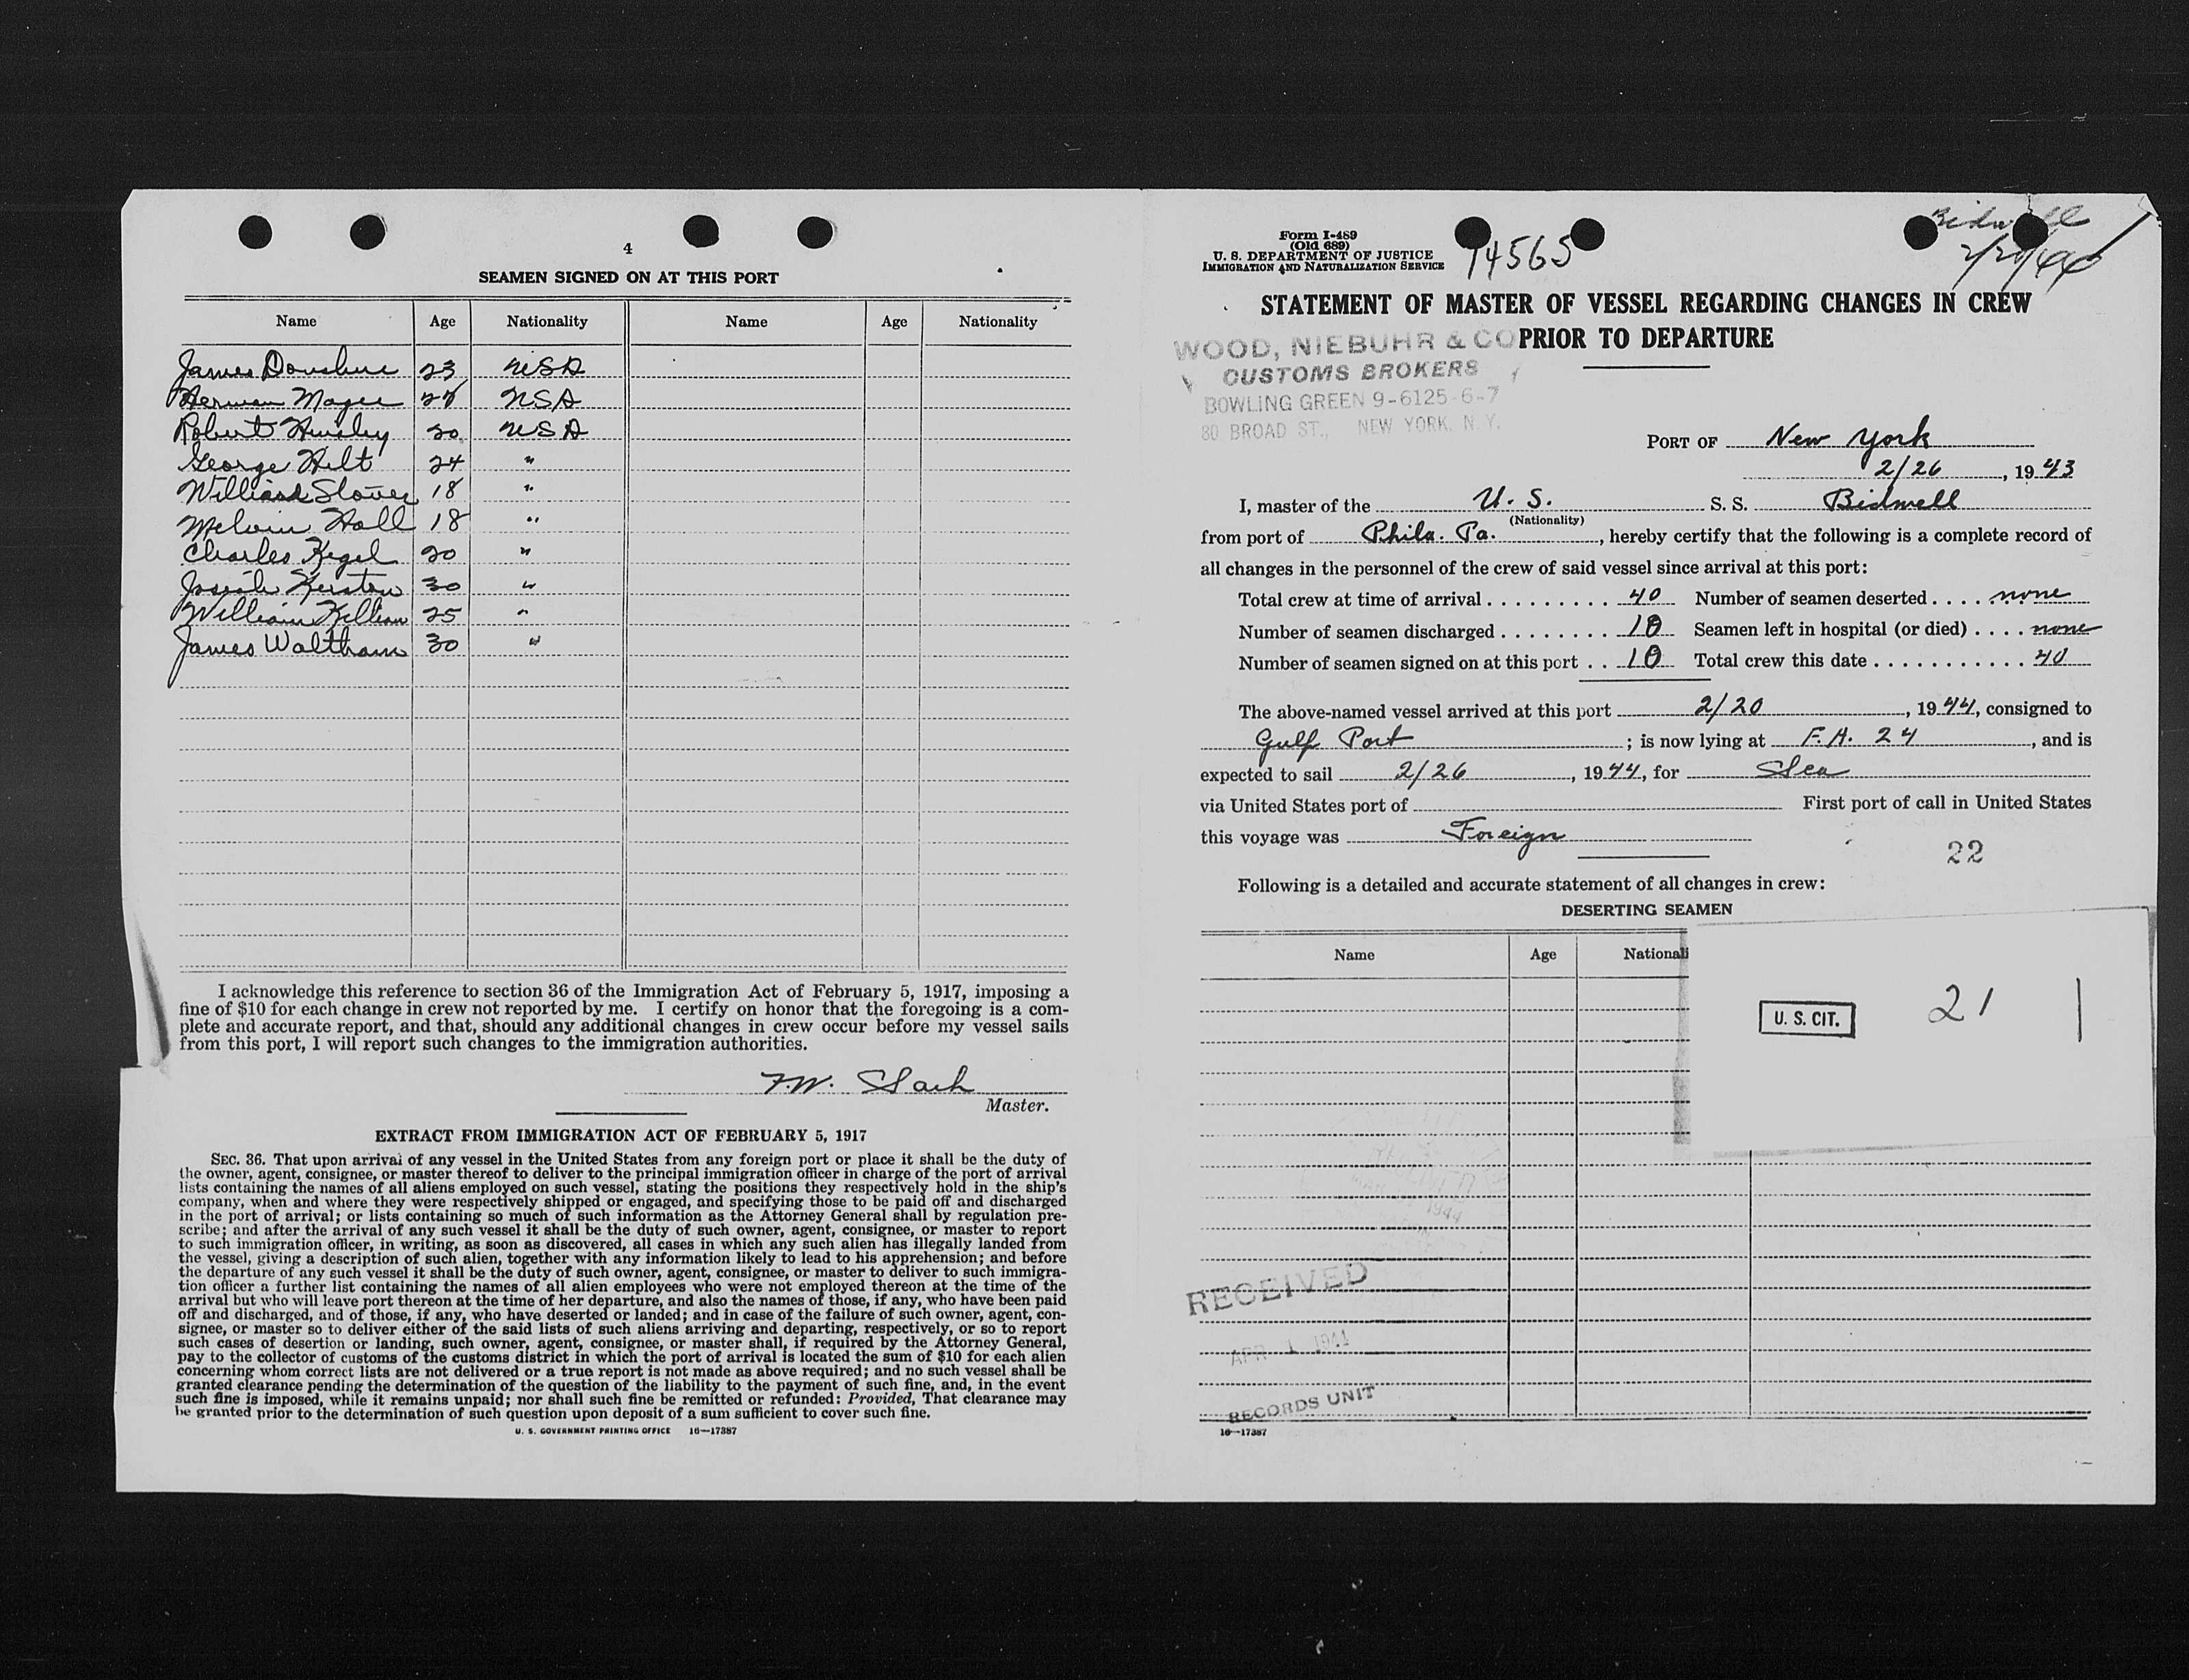 4
SEAMEN SIGNED ON AT THIS PORT
Name Age Nationality Name Age Nationality
James 23 USA
Herman Magee USA
Robert 20 USA
George Hilt 24 "
Slover 18 "
Melvin Hall 18 "
Charles Kegel 20 "
30 "
William Killian 25 "
James Waltham 30 "
I acknowledge this reference to section 36 of the Immigration Act of February 5, 1917, imposing a
fine of $10 for each change in crew not reported by me. I certify on honor that the foregoing is a com-
plete and accurate report, and that, should any additional changes in crew occur before my vessel sails
from this port, I will report such changes to the immigration authorities.
Master.
EXTRACT FROM IMMIGRATION ACT OF FEBRUARY 5, 1917
SEC. 36. That upon arrival of any vessel in the United States from any foreign port or place it shall be the duty of
the owner, agent, consignee, or master thereof to deliver to the principal immigration officer in charge of the port of arrival
lists containing the names of all aliens employed on such vessel, stating the positions they respectively hold in the ship's
company, when and where they were respectively shipped or engaged, and specifying those to be paid off and discharged
in the port of arrival; or lists containing so much of such information as the Attorney General shall by regulation pre-
scribe; and after the arrival of any such vessel it shall be the duty of such owner, agent, consignee, or master to report
to such immigration officer, in writing, as soon as discovered, all cases in which any such alien has illegally landed from
the vessel, giving a description of such alien, together with any information likely to lead to his apprehension; and before
the departure of any such vessel it shall be the duty of such owner, agent, consignee, or master to deliver to such immigra-
tion officer a further list containing the names of all alien employees who were not employed thereon at the time of the
arrival but who will leave port thereon at the time of her departure, and also the names of those, if any, who have been paid
off and discharged, and of those, if any, who have deserted or landed; and in case of the failure of such owner, agent, con-
signee, or master so to deliver either of the said lists of such aliens arriving and departing, respectively, or so to report
such cases of desertion or landing, such owner, agent, consignee, or master shall, if required by the Attorney General,
pay to the collector of customs of the customs district in which the port of arrival is located the sum of $10 for each alien
concerning whom correct lists are not delivered or a true report is not made as above required; and no such vessel shall be
granted clearance pending the determination of the question of the liability to the payment of such fine, and, in the event
such fine is imposed, while it remains unpaid; nor shall such fine be remitted or refunded: Provided, That clearance may
be granted prior to the determination of such question upon deposit of a sum sufficient to cover such fine.
U. S. GOVERNMENT PRINTING OFFICE 16—17387
Form I-489
(Old 689)
U. S. DEPARTMENT OF JUSTICE
IMMIGRATION AND NATURALIZATION SERVICE
74565
Bidwell
STATEMENT OF MASTER OF VESSEL REGARDING CHANGES IN CREW
PRIOR TO DEPARTURE
WOOD, NIEBUHR & CO
CUSTOMS BROKERS
BOWLING GREEN 9-6125-6-7
80 BROAD ST., NEW YORK, N. Y.
PORT OF New York
2/26, 1943
I, master of the U. S. S. S. Bidwell
(Nationality)
from port of Phila. Pa., hereby certify that the following is a complete record of
all changes in the personnel of the crew of said vessel since arrival at this port:
Total crew at time of arrival 40 Number of seamen deserted none
Number of seamen discharged 10 Seamen left in hospital (or died) none
Number of seamen signed on at this port 10 Total crew this date 40
The above-named vessel arrived at this port 2/20, 1944, consigned to
Gulf Port; is now lying at F.A. 24, and is
expected to sail 2/26, 1944, for Sea
via United States port of First port of call in United States
this voyage was Foreign
22
Following is a detailed and accurate statement of all changes in crew:
DESERTING SEAMEN
Name Age Nationali
U. S. CIT. 21
1944
RECEIVED
APR 1 1944
RECORDS UNIT
16—17387